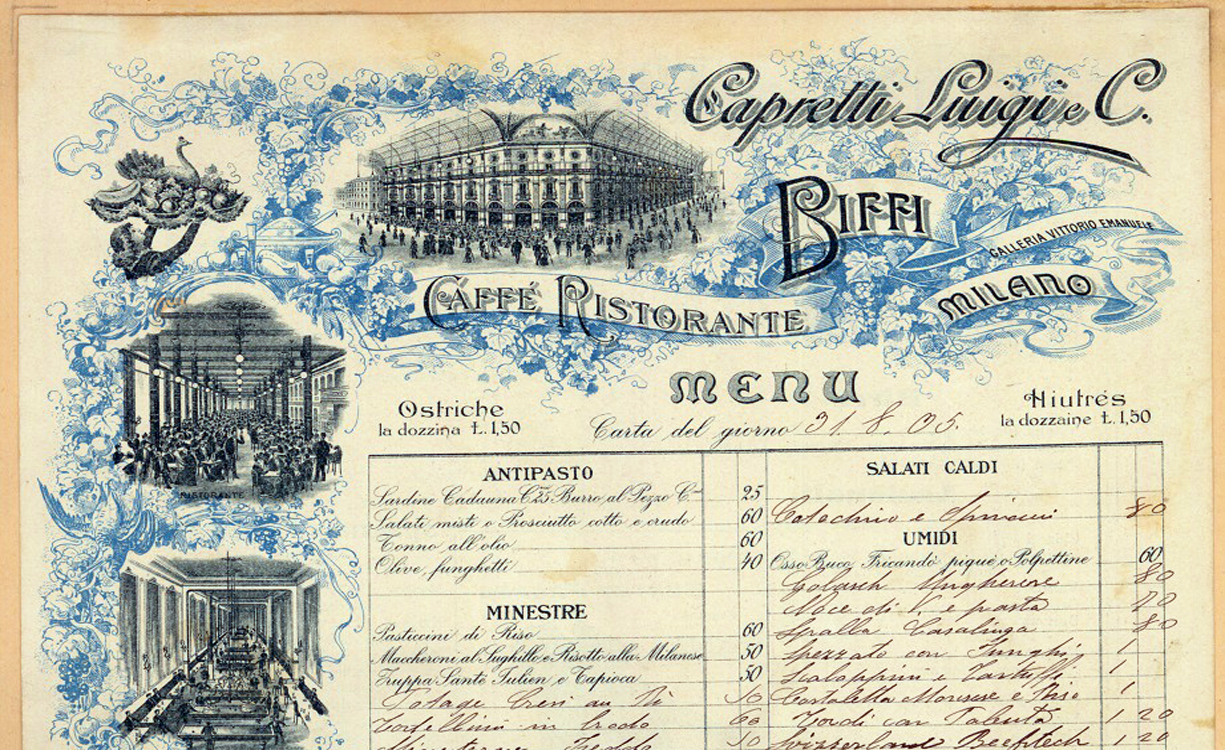 Capretti Luigi e C.
BIFFI
GALLERIA VITTORIO EMANUELE
MILANO
CAFFÉ RISTORANTE
MENU
Ostriche
la dozzina Ł. 1,50
Hiutrés
la dozzaine Ł. 1,50
Carta del giorno 31. 8. 05.
RISTORANTE
ANTIPASTO
Sardine Cadauna C. 25 Burro al Pezzo C. 25
Salati misti e Prosciutto cotto e crudo 60
Tonno all'olio 60
Olive, funghetti 40
MINESTRE
Pasticcini di Riso 60
Maccheroni al Sughillo e Risotto alla Milanese 50
Zuppa Santé Julien e Tapioca 50
Potage
Tortellini in brodo 60
SALATI CALDI
Cotechino e Spinacci 80
UMIDI
Osso Buco, Fricandò piquè o Polpettine 60
Golasch Ungherese 80
Noce di e pasta
Spalla Casalinga 80
Spezzato con Funghi 1
Scaloppini e Tartuffi 1
Costoletta e Riso 1
Tordi con Polenta 1 20
1 20